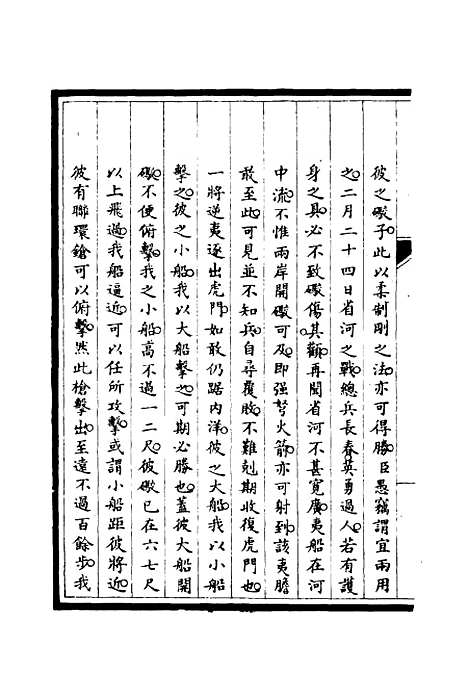 彼之礮子。此以柔制剛之法。亦可得勝。臣愚竊謂宜兩用
之。二月二十四日省河之戰。總兵長春英勇過人。若有護
身之具。必不致礮傷其顴。再聞省河不甚寬廣。夷船在河
中流。不惟兩岸開礮可及。即强弩火箭。亦可射到。該夷膽
敢至此。可見並不知兵。自尋覆敗。不難剋期收復虎門也。
一將逆夷逐出虎門。如敢仍踞内洋。彼之大船。我以小船
擊之。彼之小船。我以大船擊之。可期必勝也。蓋彼大船開
礮。不便俯擊。我之小船高不過一二尺。彼礮已在六七尺
以上飛過。我船逼近。可以任所攻擊。或謂小船距彼將近。
彼有聯環鎗可以俯擊。然此槍擊出。至遠不過百餘步。我